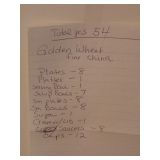 Total pcs 54
Golden Wheat
fine China
Plates - 8
Platter - 1
Serving Bowl - 1
Soup Bowls - 7
Sm plates - 8
Sm Bowls - 8
Sugar - 1
Creamer - 1
Saucers - 8
Cups - 12